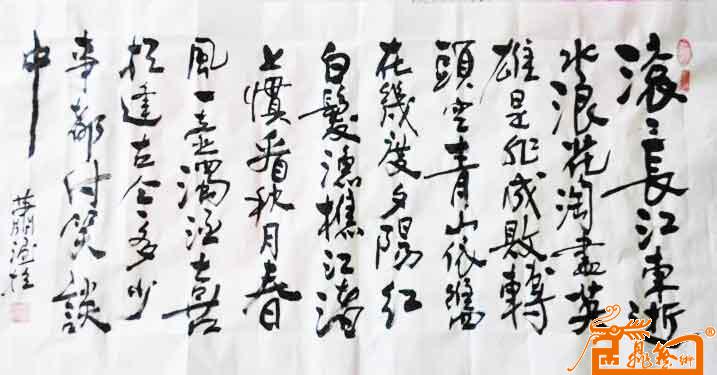 滚〻長江東逝
水浪花淘盡英
雄是非成敗轉
頭空青山依舊
在幾度夕陽红
白髮漁樵江渚
上慣看秋月春
風一壶濁酒喜
相逢古今多少
事都付笑談
中